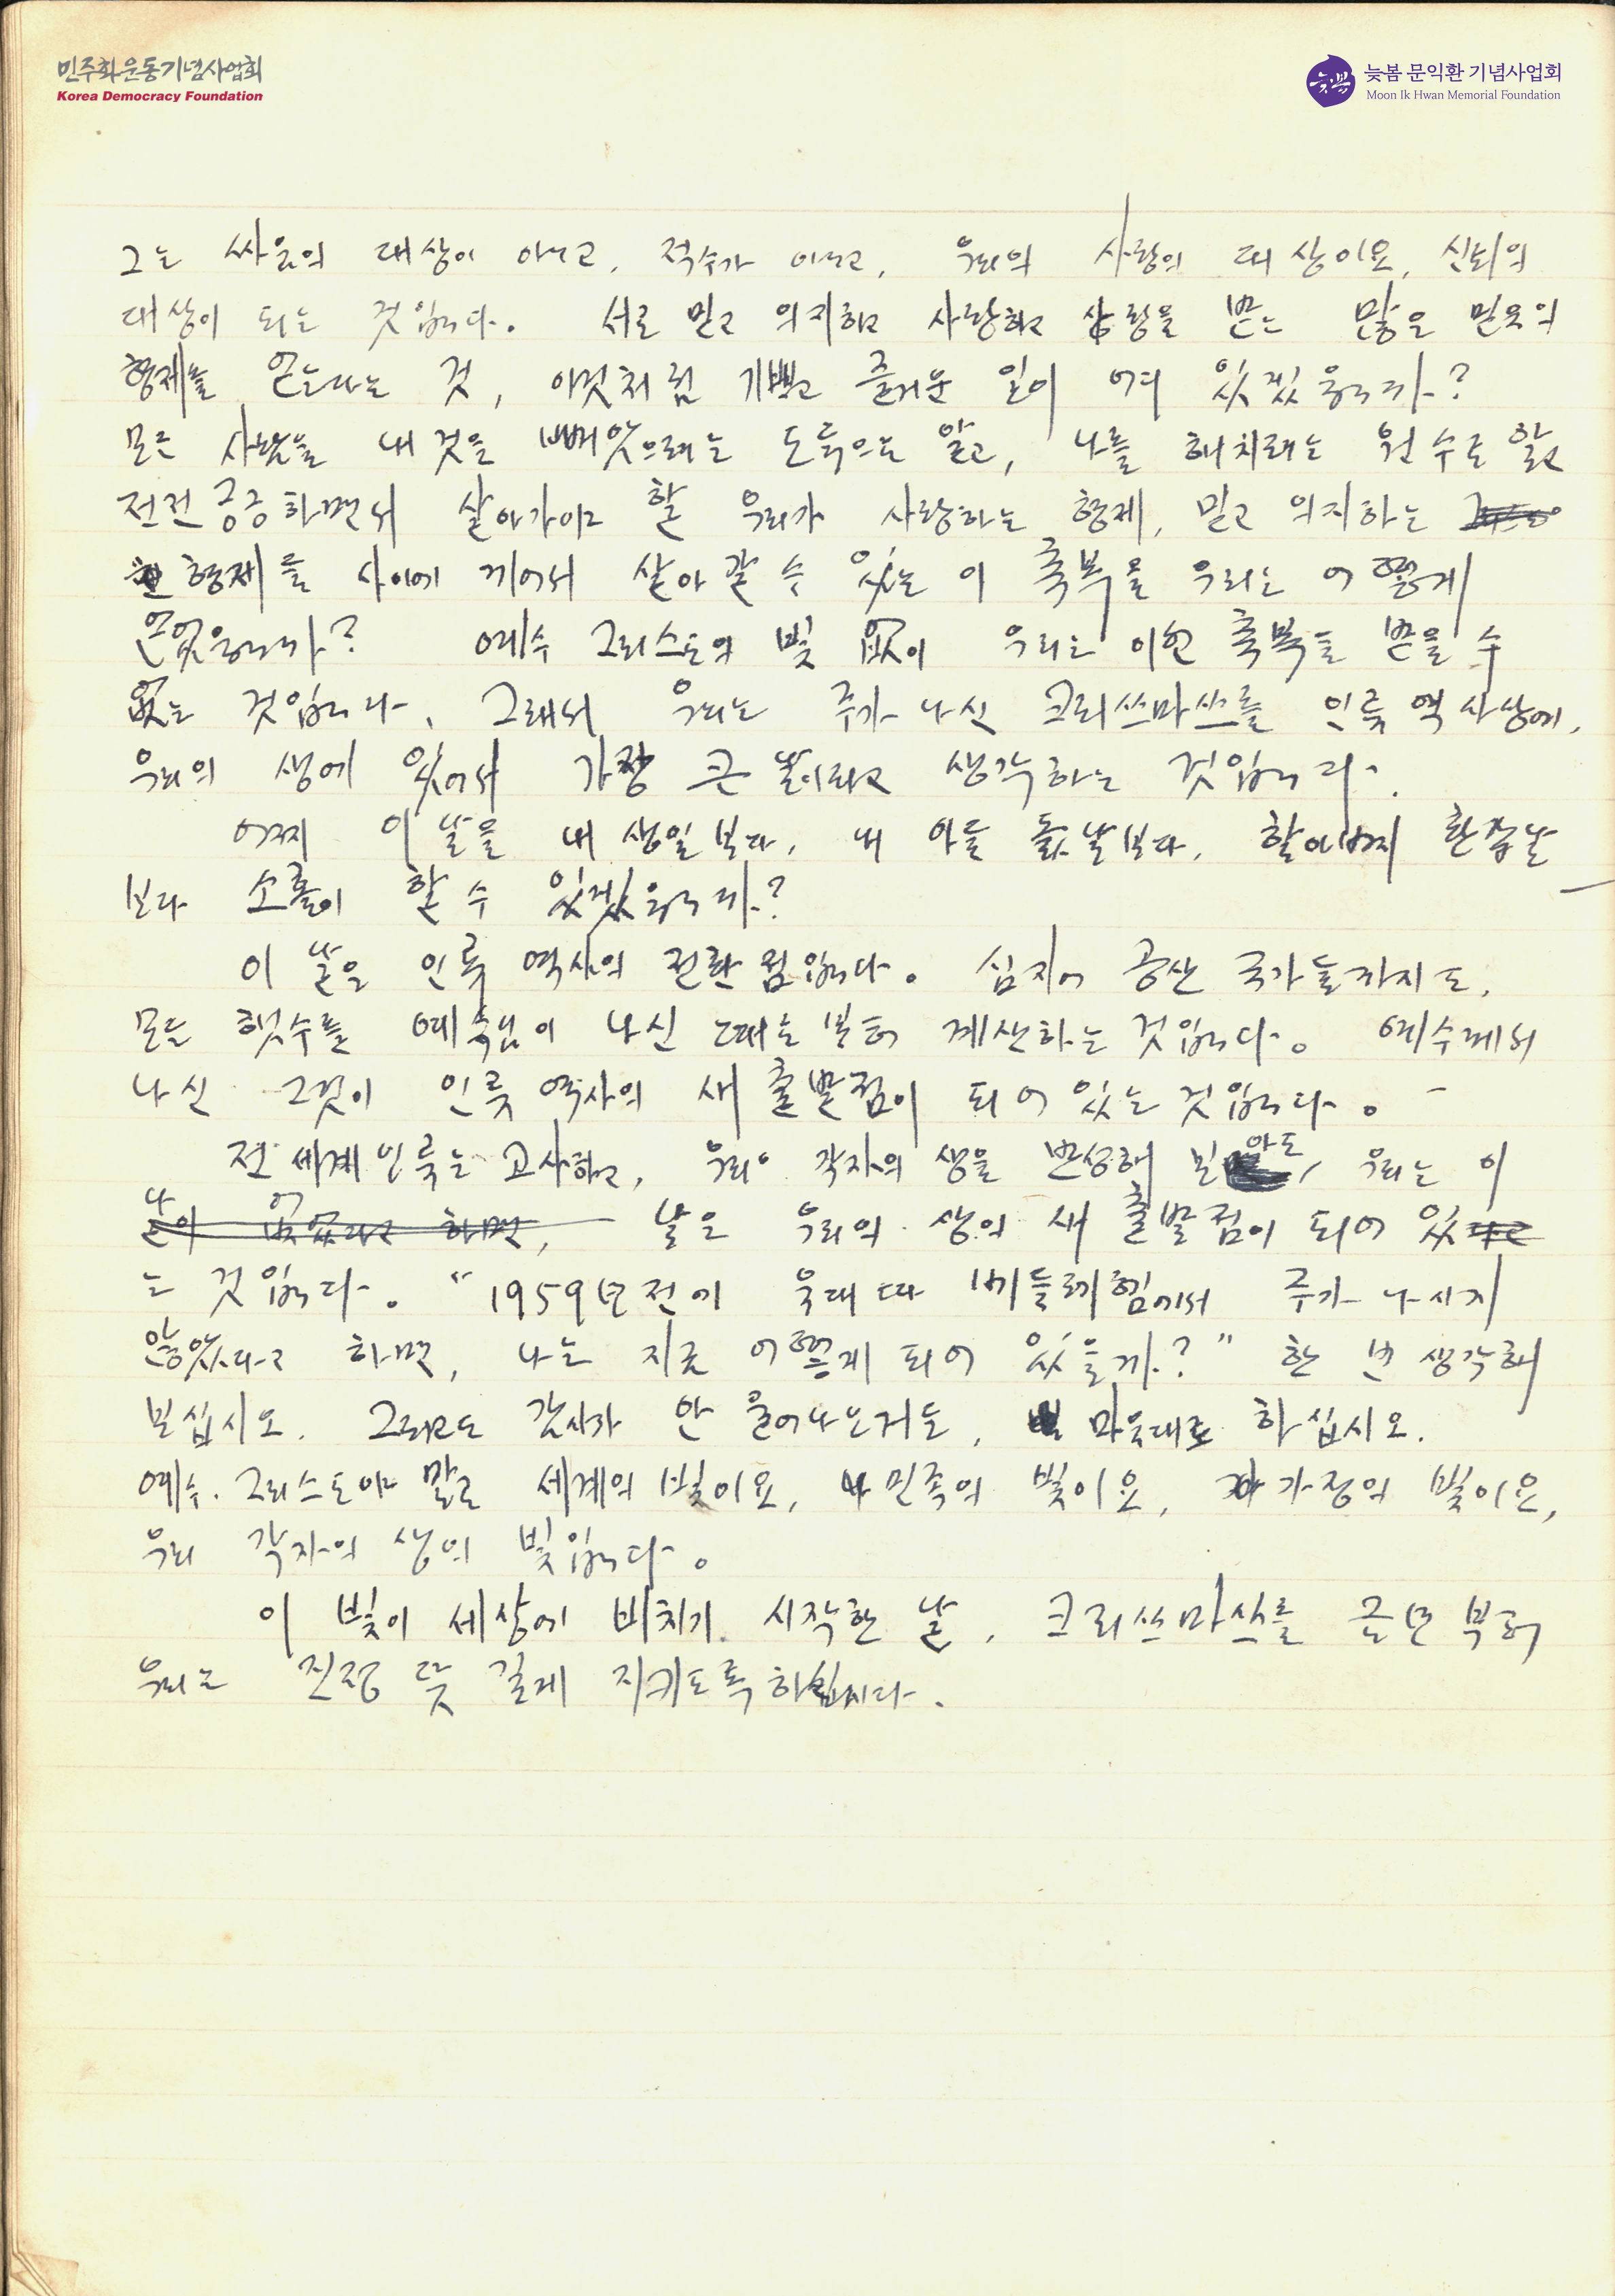 민주화운동기념사업회
Korea Democracy Foundation
늦봄
늦봄 문익환 기념사업회
Moon Ik Hwan Memorial Foundation
그는 싸움의 대상이 아니고, 적수가 아니고, 우리의 사랑의 대상이요, 신뢰의
대상이 되는 것입니다. 서로 믿고 의지하고 사랑하고 사랑을 받는 많은 믿음의
형제를 얻는다는 것, 이것처럼 기쁘고 즐거운 일이 어디 있겠읍니까?
모든 사람을 내 것을 빼앗으려는 도둑으로 알고, 나를 해치려는 원수로 알고
전전긍긍하면서 살아가야 할 우리가 사랑하는 형제, 믿고 의지하는
형제들 사이에 끼어서 살아갈 수 있는 이 축복을 우리는 어떻게
얻었읍니까? 예수 그리스도의 빛 없이 우리는 이런 축복을 받을 수
없는 것입니다. 그래서 우리는 주가 나신 크리쓰마쓰를 인류 역사상에,
우리의 생에 있어서 가장 큰 날이라고 생각하는 것입니다.
어찌 이 날을 내 생일보다, 내 아들 돐날보다, 할아버지 환갑날
보다 소홀이 할 수 있겠읍니까?
이 날은 인류 역사의 전환점입니다. 심지어 공산 국가들까지도,
모든 햇수를 예수님이 나신 때로부터 계산하는 것입니다. 예수께서
나신 그것이 인류 역사의 새 출발점이 되어 있는 것입니다.
전 세계 인류는 고사하고, 우리 각자의 생을 반성해 보아도, 우리는 이
날이 없었다고 하면, 날은 우리의 생의 새 출발점이 되어 있
는 것입니다. "1959년 전에 유대 땅 베들레헴에서 주가 나시지
않았다고 하면, 나는 지금 어떻게 되어 있을까?" 한 번 생각해
보십시오. 그래도 감사가 안 울어나오거든, 마음대로 하십시오.
예수 그리스도야 말로 세계의 빛이요, 민족의 빛이요, 가정의 빛이요,
우리 각자의 생의 빛입니다.
이 빛이 세상에 비치기 시작한 날, 크리쓰마쓰를 금년부터
우리는 진정 뜻 깊게 지키도록 하십시다.